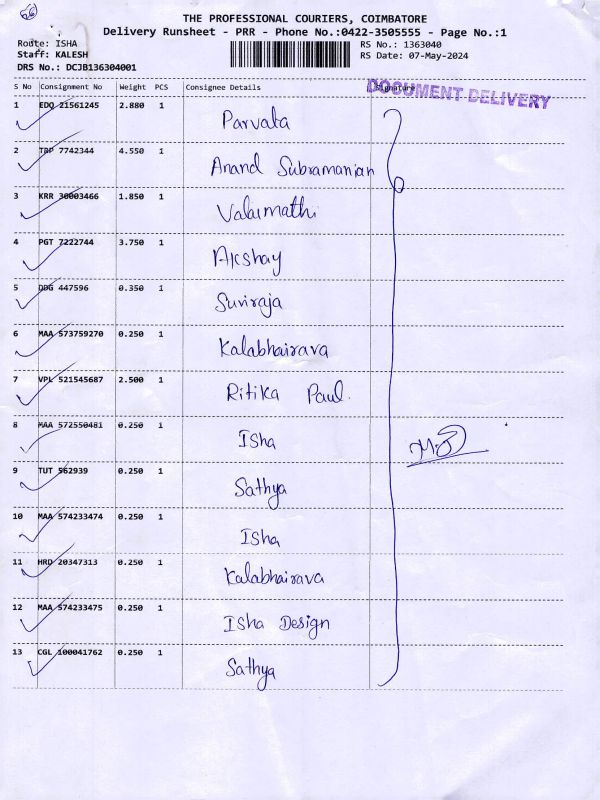 26
THE PROFESSIONAL COURIERS, COIMBATORE
Delivery Runsheet - PRR - Phone No.:0422-3505555 - Page No.:1
Route: ISHA
Staff: KALESH
DRS No.: DCJB136304001
RS No.: 1363040
RS Date: 07-May-2024
S No Consignment No Weight PCS Consignee Details Signature
DOCUMENT DELIVERY
1 EDQ 21561245 2.880 1 Parvata
2 TRP 7742344 4.550 1 Anand Subramanian
3 KRR 30003466 1.850 1 Valarmathi
4 PGT 7222744 3.750 1 Akshay
5 447596 0.350 1 Suviraja
6 MAA 573759270 0.250 1 Kalabhairava
7 VPL 521545687 2.500 1 Ritika Paul.
8 MAA 572550481 0.250 1 Isha
9 TUT 562939 0.250 1 Sathya
10 MAA 574233474 0.250 1 Isha
11 HRD 20347313 0.250 1 Kalabhairava
12 MAA 574233475 0.250 1 Isha Design
13 CGL 100041762 0.250 1 Sathya